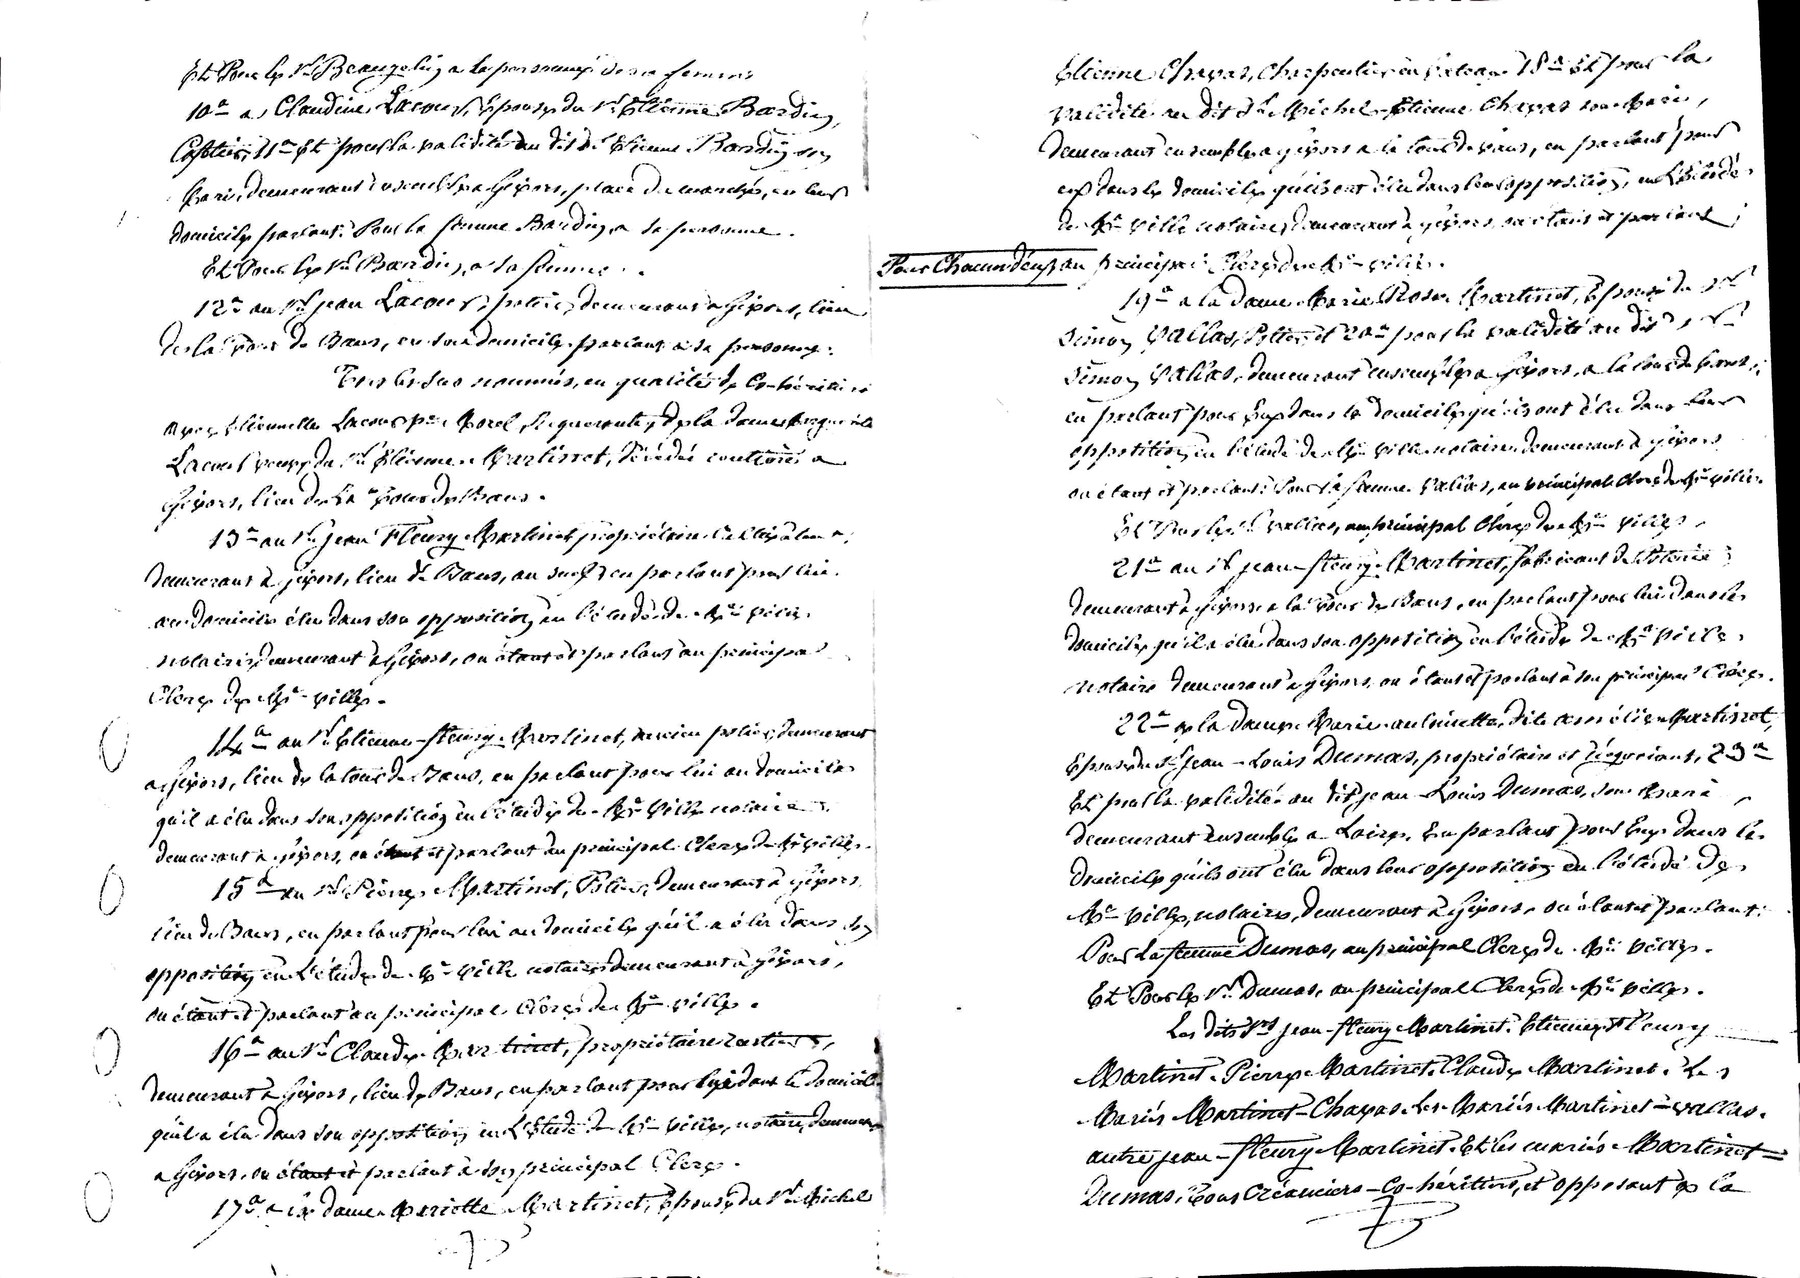 Et Pour le Sr Beaugelin a la personne de sa femme
10° a Claudine Lacour, Epouse du Sr Etienne Bardin,
11° Et pour la validité au dit Sr Etienne Bardin son
Mari, demeurant ensemble a Givors, place du marché, en leur
domicile parlant: Pour la femme Bardin, a sa personne.
Et Pour le Sr Bardin, a sa femme.
12° au Sr Jean Lacour, potier, demeurant a Givors, lieu
de la Tour de Bans, en son domicile parlant a sa personne.
Tous les sus nommés, en qualité de Co-héritiers
avec Etiennette Lacour fme Morel, Sequerante, de la dame Marguerite
Lacour veuve du Sr Etienne Martinet, décédée a
Givors, lieu de La Tour de Bans.
13° au Sr Jean Fleury Martinet propriétaire
demeurant à Givors, lieu de Bans, en parlant pour lui
au domicile élu dans son opposition en l'étude de Me Ville
notaire demeurant à Givors, ou étant et parlant au principal
Clerc de Me Ville.
14° au Sr Etienne-fleury Martinet, ancien potier, demeurant
a Givors, lieu de la tour de Bans, en parlant pour lui au domicile
qu'il a élu dans son opposition en l'étude de Me Ville notaire
demeurant a Givors, ou étant et parlant au principal Clerc de Me Ville.
15° au Sr Pierre Martinet, Potier, demeurant à Givors
lieu de Bans, en parlant pour lui au domicile qu'il a élu dans son
opposition en L'étude de Me Ville notaire demeurant à Givors,
ou étant et parlant au principal Clerc de Me Ville.
16° au Sr Claude Martinet, propriétaire rentier,
demeurant à Givors, lieu de Bans, en parlant pour lui dans le domicile
qu'il a élu dans son opposition en L'étude de Me Ville, notaire, demeurant
a Givors, ou étant et parlant à son principal Clerc.
17° a la dame Mariette Martinet, Epouse du Sr Michel
Etienne Chavas, Charpentier en bateau 18° Et pour la
validité au dit Sr Michel-Etienne Chavas son Mari,
demeurant ensemble a Givors a la tour de Bans, en parlant pour
eux dans le domicile qu'ils ont élu dans leur opposition, en L'étude
de Me Ville notaire, demeurant à Givors, ou étant et parlant
Pour Chacun d'eux, au principal Clerc de Me Ville.
19° a la dame Marie Rose Martinet, Epouse du Sr
Simon Vallas, Potier, et 20° pour la validité au dit Sr
Simon Vallas, demeurant ensemble a Givors, a la tour de Bans,
en parlant pour Eux dans le domicile qu'ils ont élu dans leur
opposition, en l'étude de Me Ville notaire demeurant à Givors
ou étant et parlant: Pour la femme Vallas, au principal Clerc de Me Ville.
Et Pour le Sr Vallas, au principal Clerc de Me Ville.
21° au Sr Jean-fleury Martinet, fabricant de Poterie
demeurant à Givors a la Tour de Bans, en parlant pour lui dans le
domicile qu'il a élu dans son opposition en l'étude de Me Ville
notaire demeurant a Givors, ou étant et parlant à son principal Clerc.
22° a la dame Marie antoinette, dite amélie Martinet,
Epouse du Sr Jean-Louis Dumas, propriétaire et Négociant, 23°
Et pour la validité au dit Jean-Louis Dumas, son Mari
demeurant ensemble a Loire, En parlant pour Eux dans le
domicile qu'ils ont élu dans leur opposition en l'étude de
Me Ville, notaire, demeurant à Givors, ou étant et parlant:
Pour La femme Dumas, au principal Clerc de Me Ville.
Et Pour le Sr Dumas, au principal Clerc de Me Ville.
Les dits Srs Jean-fleury Martinet, Etienne Fleury
Martinet, Pierre Martinet, Claude Martinet, Les
Mariés Martinet-Chavas, Les Mariés Martinet-Vallas,
autre Jean-fleury Martinet, Et les mariés Martinet=
Dumas, Tous Créanciers-Co-héritiers, et opposant a la